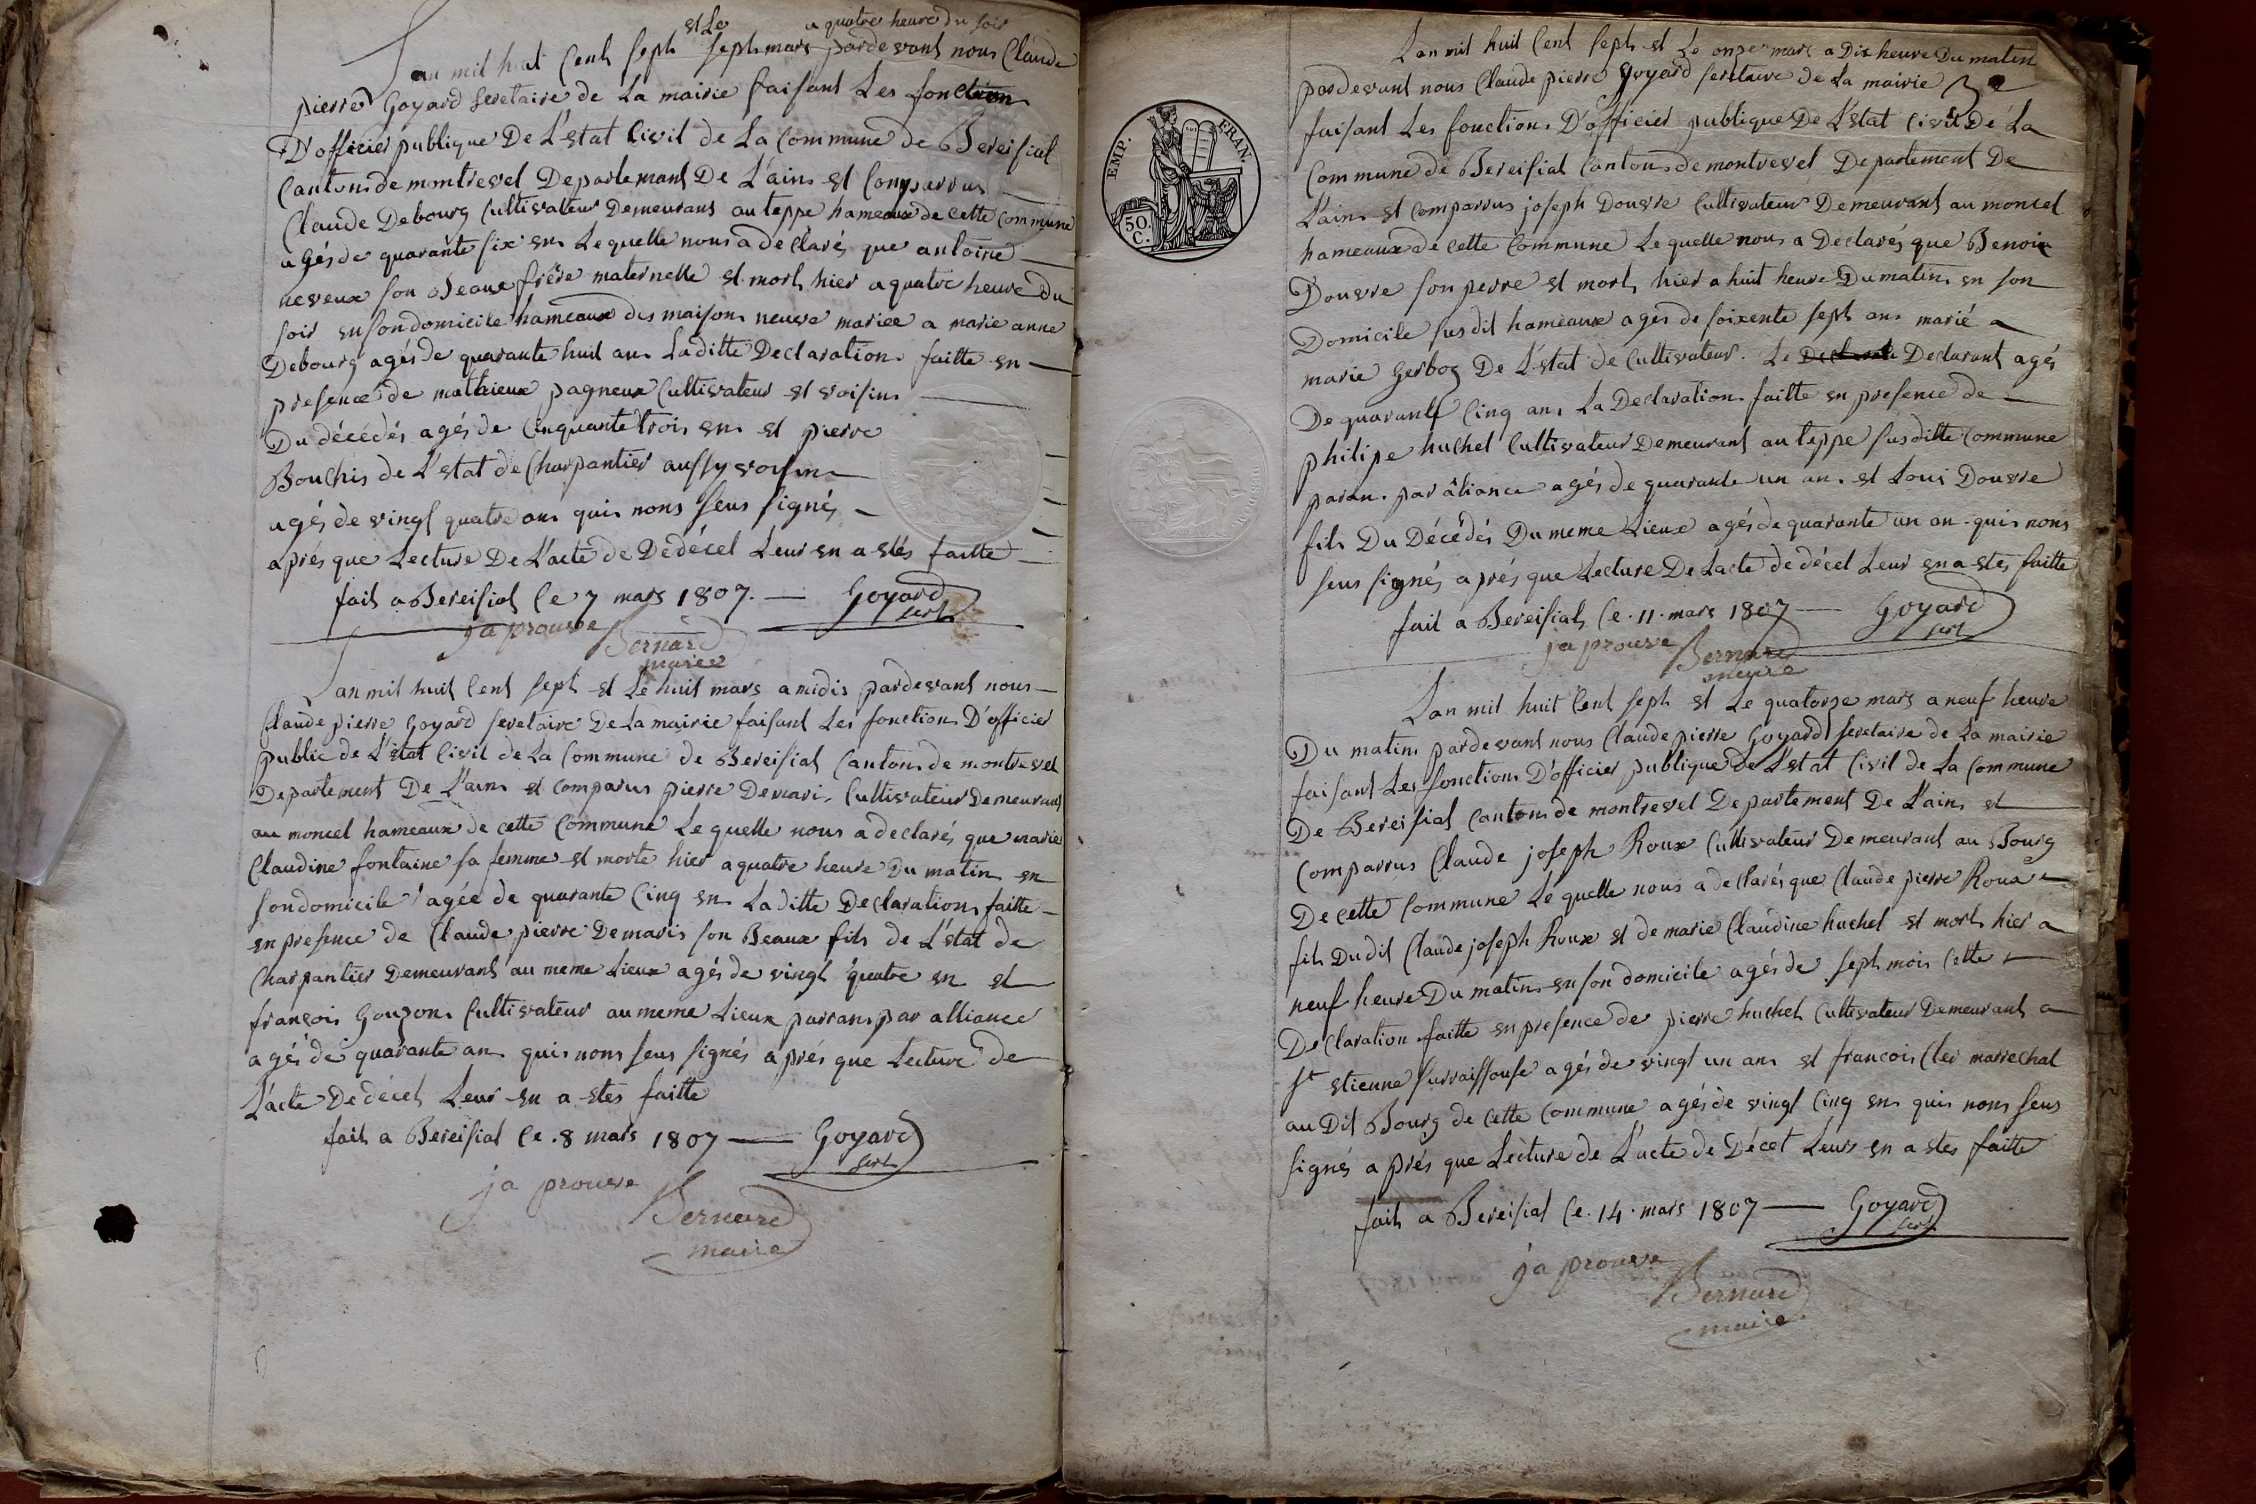 et Le a quatre heure du soir
Lan mil huit Cent sept sept mars pardevant nous Claude
pierre Goyard seretaire de La mairie faisant Les fonction
D'officier publique De L'estat Civil de La Commune de Bereisiat
Canton de montrevel Departemant De L'ain et Comparrus
Claude Debourg Cultivateur Demeurans au teppe hameaux de cette Commune
agés de quarante six en Le quelle nous a declarés que antoine
neveux son Beaux frére maternelle et mort hier a quatre heure du
soir en son domicile hameaux des maison neuve mariee a marie anne
Debourg agés de quarante huit an Laditte Declaration faitte en
presence de mathieux pagneux Cultivateur et voisin
Du décédés agés de Cinquante trois en et pierre
Bouchis de L'estat de Charpantier aussy voisin
agés de vingt quatre an qui nons seus signés
aprés que Lecture De L'acte de Dedécet Leur en a etés faitte
fait a Bereisiat Ce 7 mars 1807. Goyard
sert
ja prouve Bernard
maire
Lan mil huit Cent sept et Le huit mars a midis pardevant nous
Claude pierre Goyard seretaire De La mairie faisant Les fonction D'officier
public de L'état Civil de La Commune de Bereisiat Canton de montrevel
Departement De L'ain et Comparus pierre Demari Cultivateur Demeurant
au moncel hameaux de cette Commune Le quelle nous a declarés que marie
Claudine fontaine sa femme et morte hier a quatre heure Du matin en
son domicile agée de quarante Cinq en La ditte Declaration faitte
en presence de Claude pierre Demaris son Beaux fils de L'estat de
Charpantier Demeurant au meme Lieux agés de vingt quatre en et
françois Gouzon Cultivateur au meme Lieux parran par alliance
agés de quarante an qui nons seus signés a prés que Lecture de
L'acte De décet Leur en a etes faitte
fait a Bereisiat Ce. 8 mars 1807 Goyard
sert
ja prouve
Bernard
maire
EMP. FRAN.
50. C.
Lan mil huit Cent sept et Le onze mars a Dix heure Du matin
pardevant nous Claude pierre Goyard seretaire de La mairie
faisant Les fonction D'officier publique De L'estat Civil De La
Commune de Bereisiat Canton de montrevel Departement De
L'ain et Comparrus joseph Douvre Cultivateur Demeurant au moncel
hameaux de cette Commune Le quelle nous a Declarés que Benoit
Douvre son perre et mort hier a huit heure Du matin en son
Domicile sus dit hameaux agés de soixente sept an marié a
marie Gerboz De L'estat de Cultivateur. Le Declarant agés
De quarante Cinq an La Declaration faitte en presence de
philipe huchet Cultivateur Demeurant au teppe susditte Commune
paran par aliance agés de quarante un an et Louis Douvre
fils Du Décédés Du meme Lieux agés de quarante un an qui nons
seus signés a prés que Lecture De Lacte de décet Leur en a etes faitte
fait a Bereisiat Ce. 11. mars 1807 Goyard
sert
ja prouve Bernard
maire
Lan mil huit Cent sept et Le quatorze mars a neuf heure
Du matin pardevant nous Claude pierre Goyard seretaire de La mairie
faisant Les fonction D'officier publique De L'estat Civil de La Commune
De Bereisiat Canton de montrevel Departement De L'ain et
Comparrus Claude joseph Roux Cultivateur Demeurant au Bourg
De cette Commune Le quelle nous a declarés que Claude pierre Roux
fils Du dit Claude joseph Roux et de marie Claudine huchet et mort hier a
neuf heure Du matin en son domicile agés de sept mois Cette
Declaration faitte en presence de pierre huchet Cultivateur Demeurant a
St etienne surraissouse agés de vingt un an et francois Cler marrechal
au Dit Bourg de Cette Commune agés de vingt Cinq en qui nons seus
signés a prés que Lecture de L'acte de Décet Leurs en a etes faitte
fait a Bereisiat Ce. 14. mars 1807 Goyard
sert
ja prouve
Bernard
maire